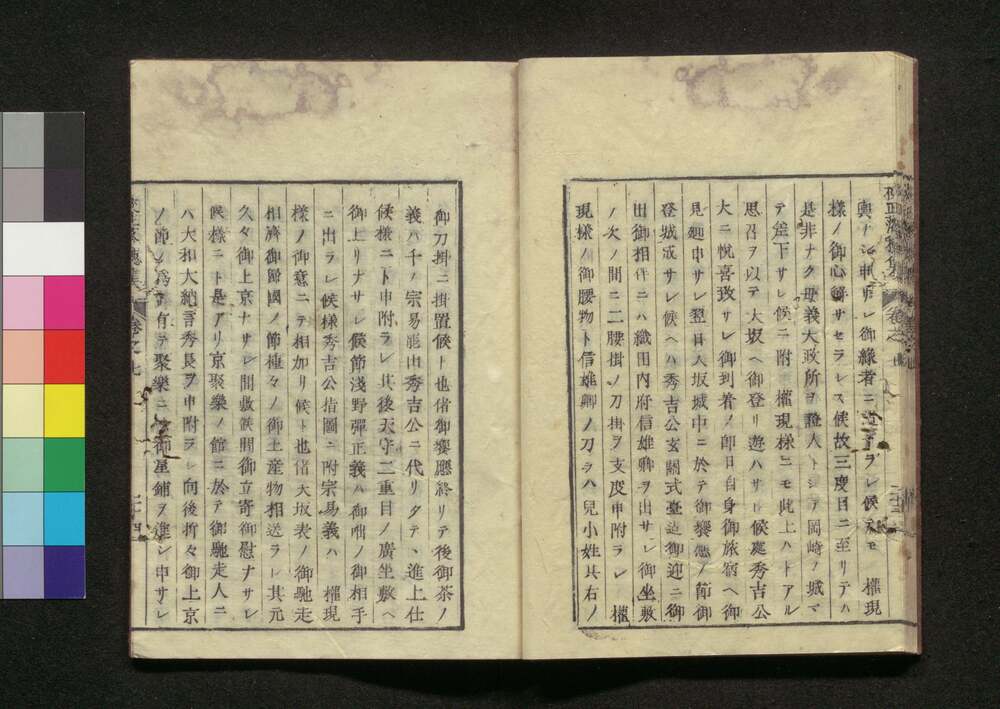 樣ノ御心解サセラレス候故三度目ニ至リテハ
是非ナク母義大政所ヲ證人トシテ岡崎ノ城マ
テ差下サレ候ニ附權現樣ニモ此上ハトアル
思召ヲ以テ大坂ヘ御登リ遊ハサレ候處秀吉公
大ニ悅喜致サレ御到着ノ卽日自身御旅宿ヘ御
見廻申サレ翌日大坂城中ニ於テ御饗應ノ節御
登城成サレ候ヘハ秀吉公玄關式臺迄御迎ニ御
出御相伴ニハ織田內府信雄卿ヲ出サレ御坐敷
ノ次ノ間ニ二腰掛ノ刀掛ヲ支度申附ラレ 權
現樣ノ御腰物ト信雄卿ノ刀ヲハ兒小姓其右ノ
御刀掛ニ掛置候ト也偖御饗應終リテ後御茶ノ
義ハ千ノ宗易罷出秀吉公ニ代リタテヽ進上仕
候樣ニト申附ラレ其後天守二重目ノ廣坐敷ヘ
御上リナサレ候節淺野彈正義ハ御咄ノ御相手
ニ出ラレ候樣秀吉公指圖ニ附宗易義ハ 權現
樣ノ御意ニテ相加リ候ト也偖大坂表ノ御馳走
相濟御歸國ノ節種々ノ御土產物相送ラレ其元
久々御上京ナサレ間敷候間御立寄御慰ナサレ
候樣ニト是アリ京聚樂ノ館ニ於テ御馳走人ニ
ハ大和大納言秀長ヲ申附ラレ向後折々御上京
ノ節ノ爲 有テ聚樂ニ 御屋鋪ヲ進シ申サレ